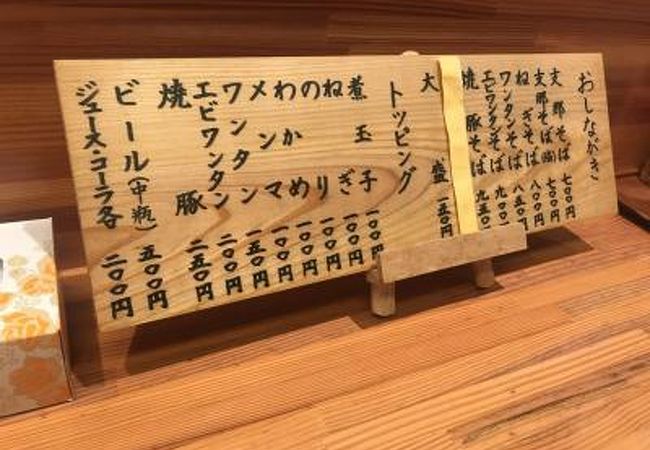 おしながき
支那そば 七〇〇円
支那そば(塩) 七〇〇円
ねぎそば 八〇〇円
ワンタンそば 八五〇
エビワンタンそば 九〇〇
焼豚そば 九五〇
大盛 一五〇円
トッピング
煮玉子 一〇〇円
ねぎ 一〇〇円
のり 一〇〇円
わかめ 一〇〇円
メンマ 一〇〇円
ワンタン 一五〇円
エビワンタン 二〇〇円
焼豚 二五〇円
ビール(中瓶) 五〇〇円
ジュース・コーラ各 二〇〇円